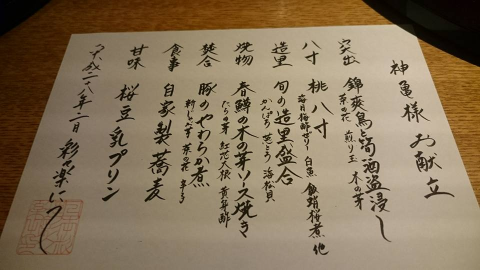 神亀様 お献立
突出 錦爽鳥と筍酒盗浸し
菜の花 煎り玉 木の芽
八寸 桃八寸
苺月梅酢ゼリー 白魚 飯蛸桜煮 他
造里 旬の造里盛合
かんぱち 炙とろ 海松貝
焼物 春鰆の木の芽ソース焼き
たらの芽 紅芯大根 黄身酢
焚合 豚のやわらか煮
新じゃが 菜の花 辛子
食事 自家製蕎麦
甘味 桜豆乳プリン
平成二八年二月